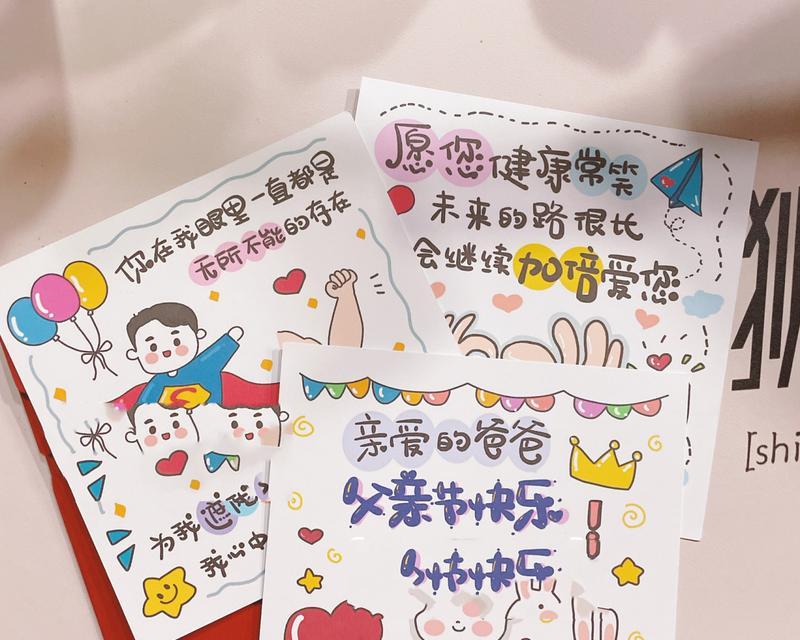 你在我眼里一直都是
无所不能的存在
为我遮
我心中
愿您健康常笑
未来的路很长
会继续加倍爱您
亲爱的爸爸
父亲节快乐
节快乐
[shi